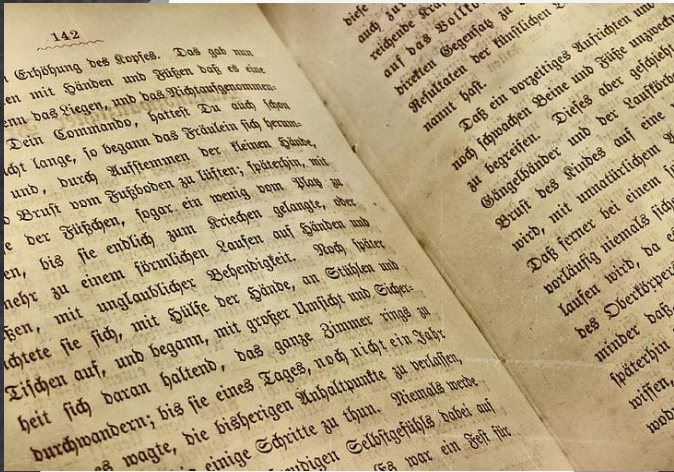 142
Erhöhung des Kopfes. Das gab nun
en mit Händen und Füßen daß es eine
enn das Liegen, und das Nichtaufgenommen-
Dein Commando, hattest Du auch schon
cht lange, so begann das Fräulein sich herum-
und, durch Aufstemmen der kleinen Hände,
Brust vom Fußboden zu lüften; späterhin, mit
e der Füßchen, sogar ein wenig vom Platz zu
en, bis sie endlich zum Kriechen gelangte, oder
mehr zu einem förmlichen Laufen auf Händen und
ßen, mit unglaublicher Behendigkeit. Noch später
ichtete sie sich, mit Hülfe der Hände, an Stühlen und
Tischen auf, und begann, mit großer Umsicht und Sicher-
heit sich daran haltend, das ganze Zimmer rings zu
durchwandern; bis sie eines Tages, noch nicht ein Jahr
es wagte, die bisherigen Anhaltpunkte zu verlassen,
einige Schritte zu thun. Niemals werde
eudigen Selbstgefühls dabei auf
Es war ein Fest für
diese
auch zur
reichende Kra
auf das Vollko
direkten Gegensatz zu
Resultaten der künstlichen
nannt hast.
Daß ein vorzeitiges Aufrichten und
noch schwachen Beine und Füße unzweck
zu begreifen. Dieses aber geschieht
Gängelbänder und der Laufkörbe
Brust des Kindes auf eine
wird, mit unnatürlichem
Daß ferner bei einem
vorläufig niemals siche
laufen wird, da es
des Oberkörpers
minder daß
späterhin
wissen,
wod